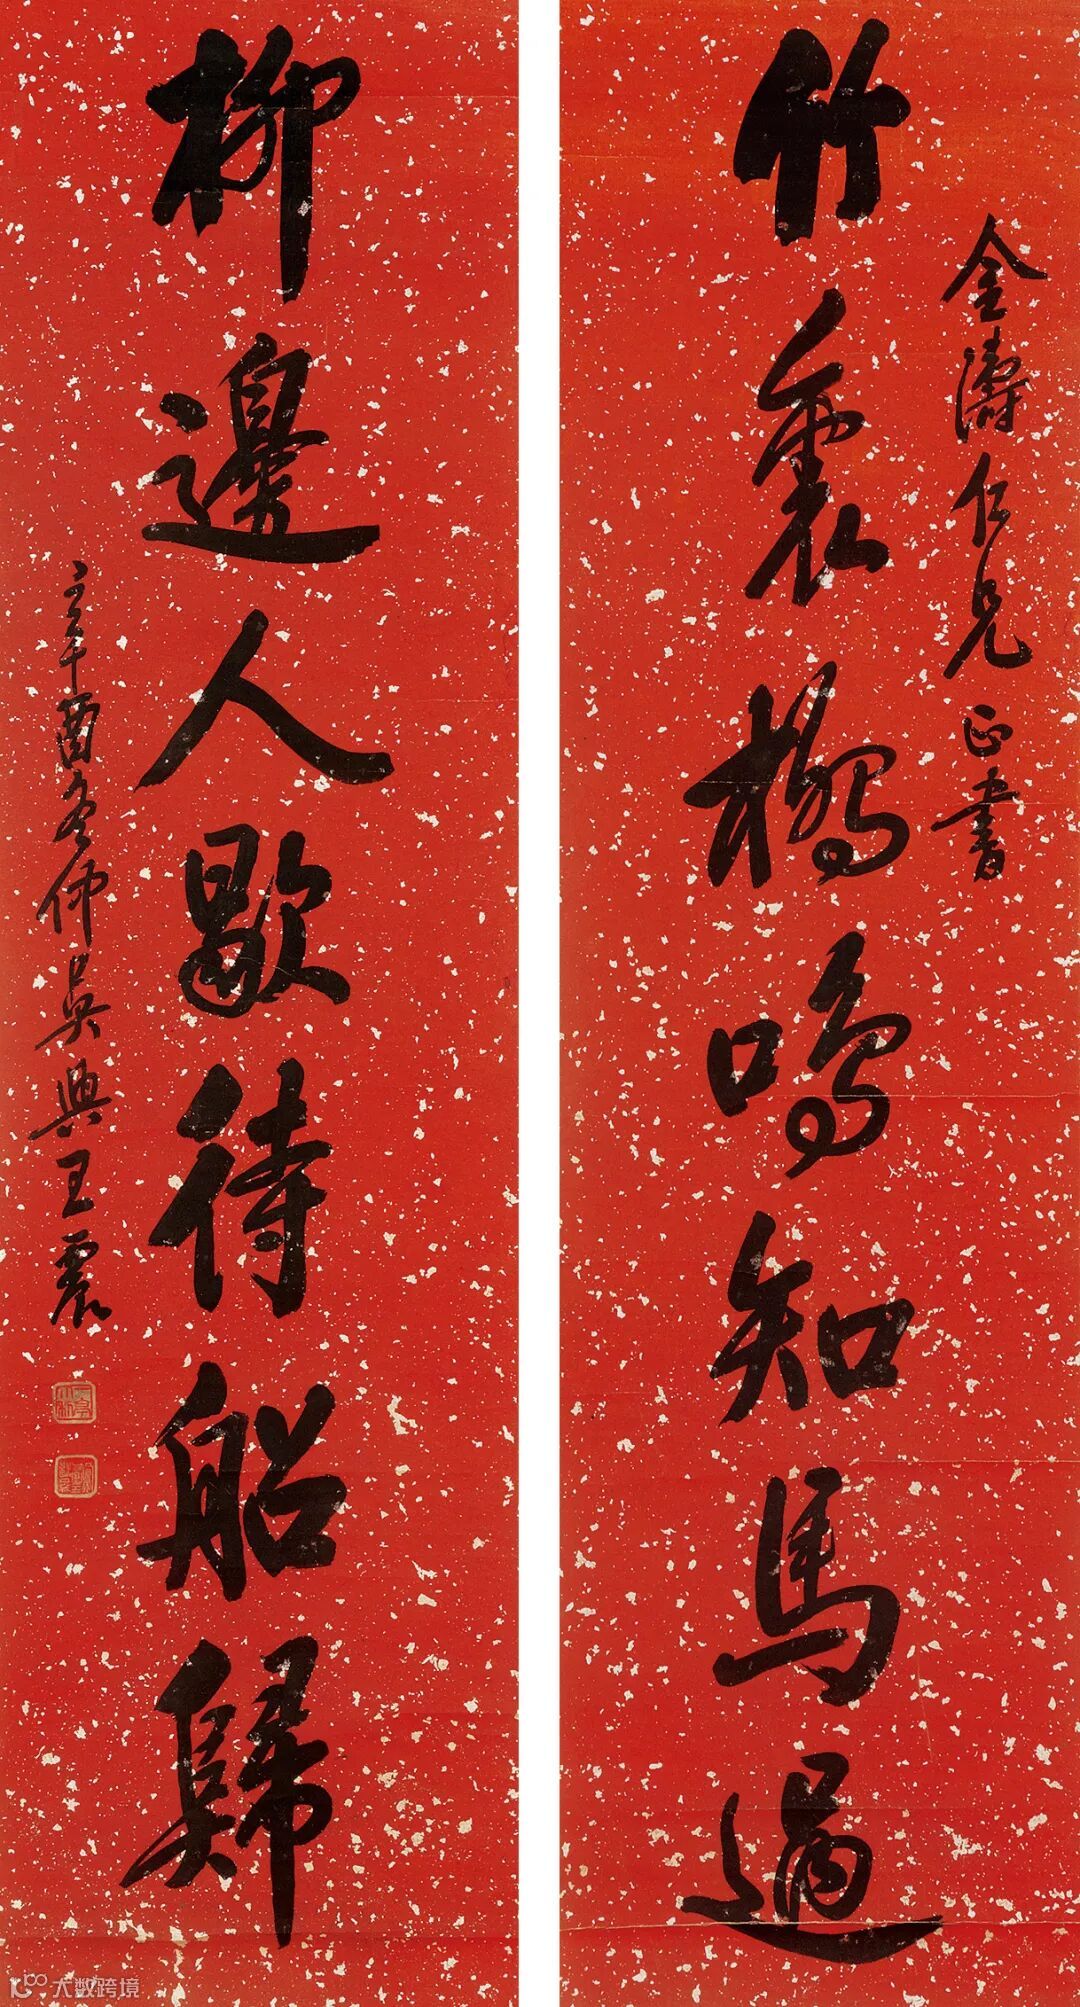 金濤仁兄正書
竹裏橋鳴知馬過
柳邊人歇待船歸
辛酉冬仲吳興王震
大数跨境